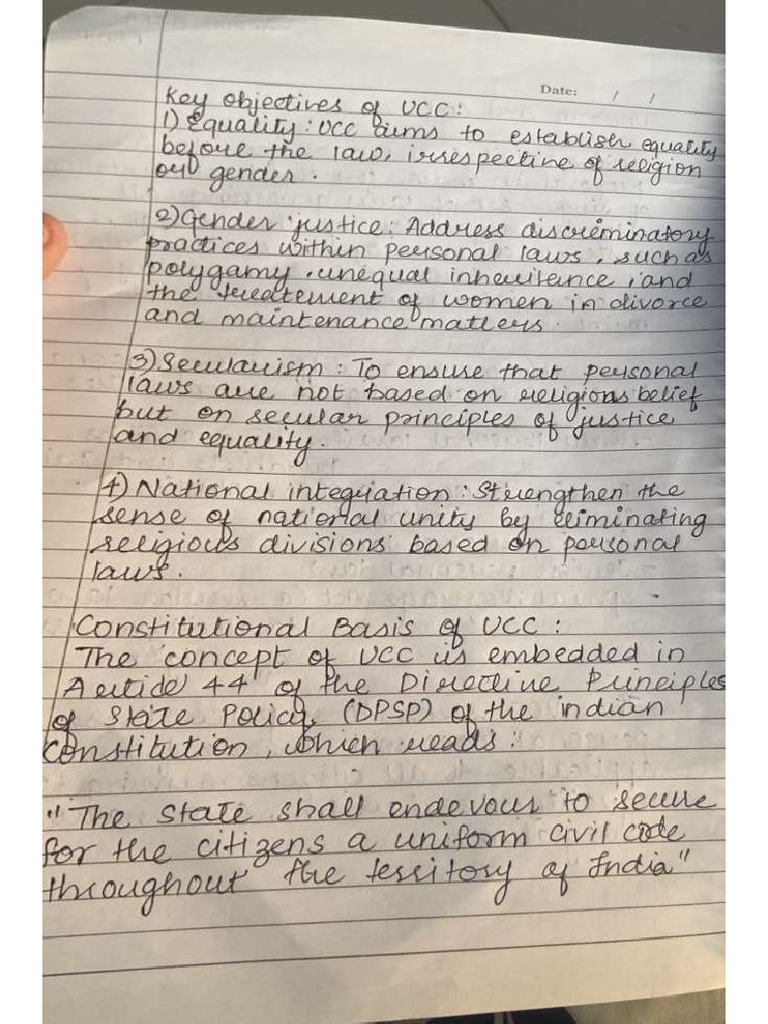 Date: / /
Key objectives of UCC:
1) Equality: UCC aims to establish equality
before the law, irrespective of religion
or gender.
2) Gender justice: Address discriminatory
practices within personal laws, such as
polygamy, unequal inheritance, and
the treatement of women in divorce
and maintenance matters.
3) Secularism: To ensure that personal
laws are not based on religions belief
but on secular principles of justice
and equality.
4) National integration: Strengthen the
sense of national unity by eliminating
religious divisions based on personal
laws.
Constitutional Basis of UCC:
The concept of UCC is embedded in
Article 44 of the Directive Principles
of State Policy (DPSP) of the indian
constitution, which reads:
"The state shall endevour to secure
for the citizens a uniform civil code
throughout the territory of India"